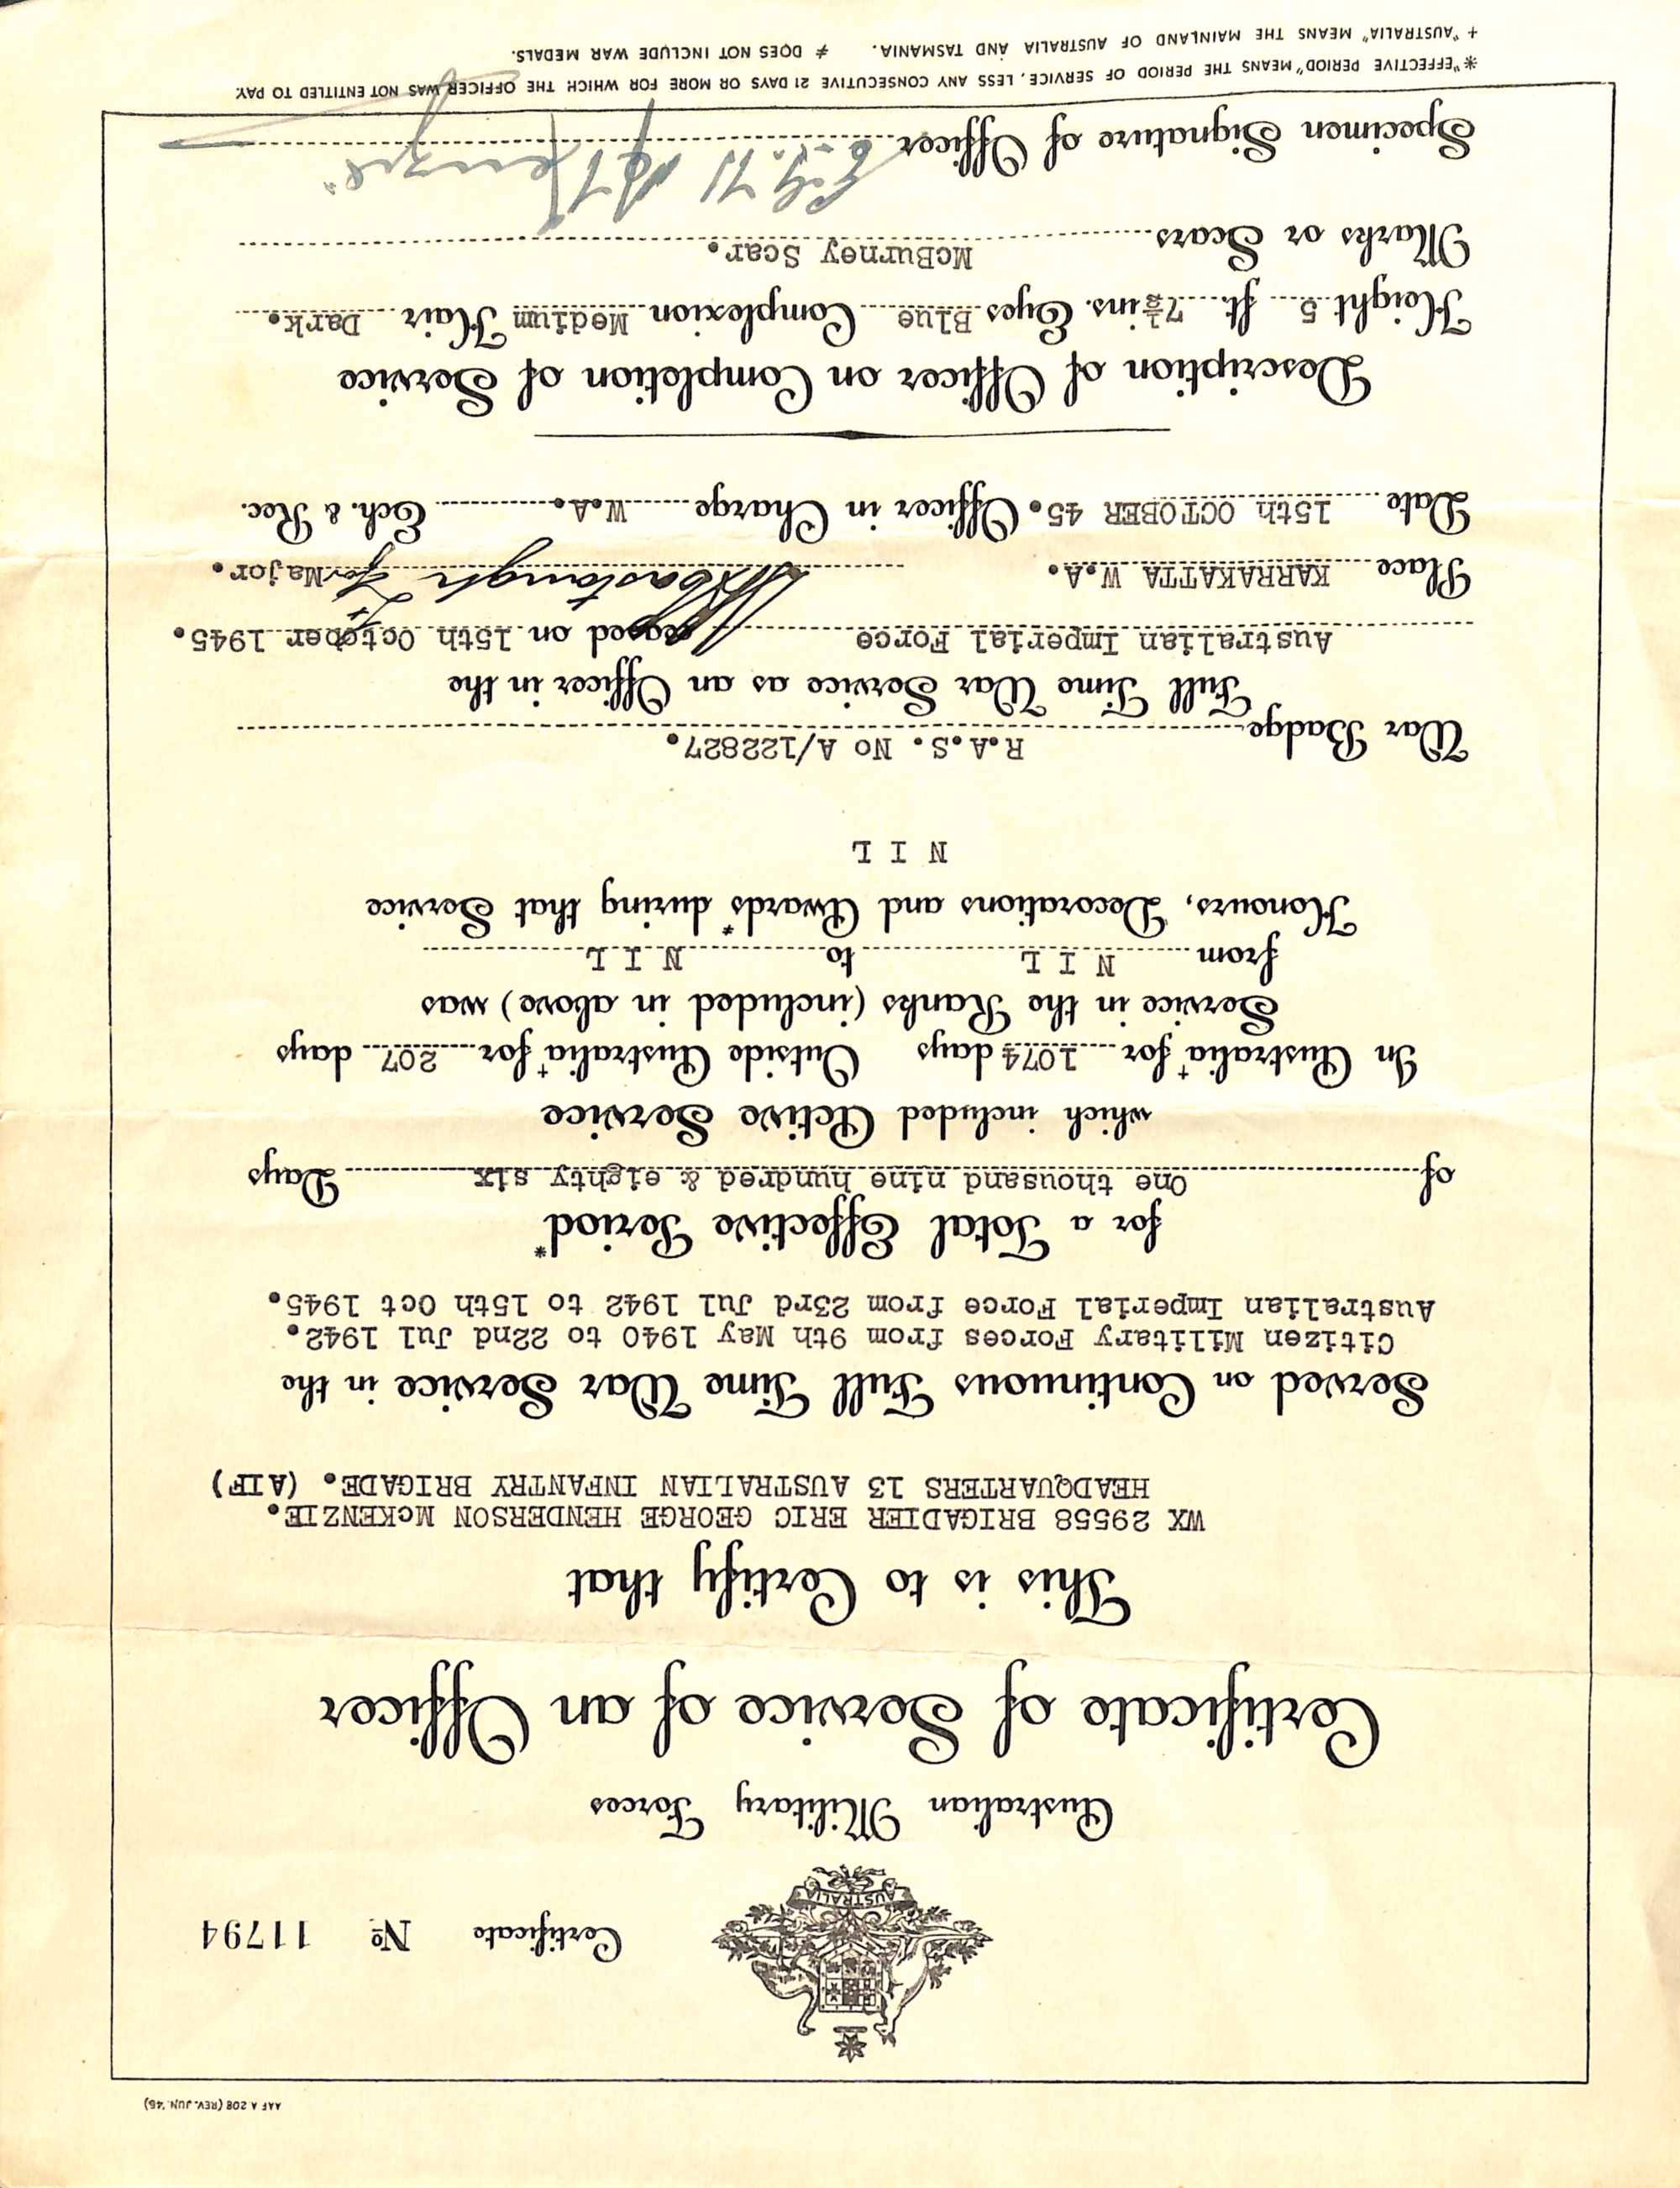 AAF A 208 (REV. JUN. '45)
Certificate No 11794
AUSTRALIA
Australian Military Forces
Certificate of Service of an Officer
This is to Certify that
WX 29558 BRIGADIER ERIC GEORGE HENDERSON McKENZIE.
HEADQUARTERS 13 AUSTRALIAN INFANTRY BRIGADE. (AIF)
Served on Continuous Full Time War Service in the
Citizen Military Forces from 9th May 1940 to 22nd Jul 1942.
Australian Imperial Force from 23rd Jul 1942 to 15th Oct 1945.
for a Total Effective Period*
of One thousand nine hundred & eighty six Days
which included Active Service
In Australia+ for 1074 days Outside Australia+ for 207 days
Service in the Ranks (included in above) was
from N I L to N I L
Honours, Decorations and Awards≠ during that Service
N I L
War Badge R.A.S. No A/122827.
Full Time War Service as an Officer in the
Australian Imperial Force ceased on 15th October 1945.
Place KARRAKATTA W.A. Lt for Major.
Date 15th OCTOBER 45. Officer in Charge W.A. Ech. & Rec.
Description of Officer on Completion of Service
Height 5 ft. 7½ ins. Eyes Blue Complexion Medium Hair Dark.
Marks or Scars McBurney Scar.
Specimen Signature of Officer E.G.H. McKenzie
*"EFFECTIVE PERIOD" MEANS THE PERIOD OF SERVICE, LESS ANY CONSECUTIVE 21 DAYS OR MORE FOR WHICH THE OFFICER WAS NOT ENTITLED TO PAY.
+ "AUSTRALIA" MEANS THE MAINLAND OF AUSTRALIA AND TASMANIA. ≠ DOES NOT INCLUDE WAR MEDALS.